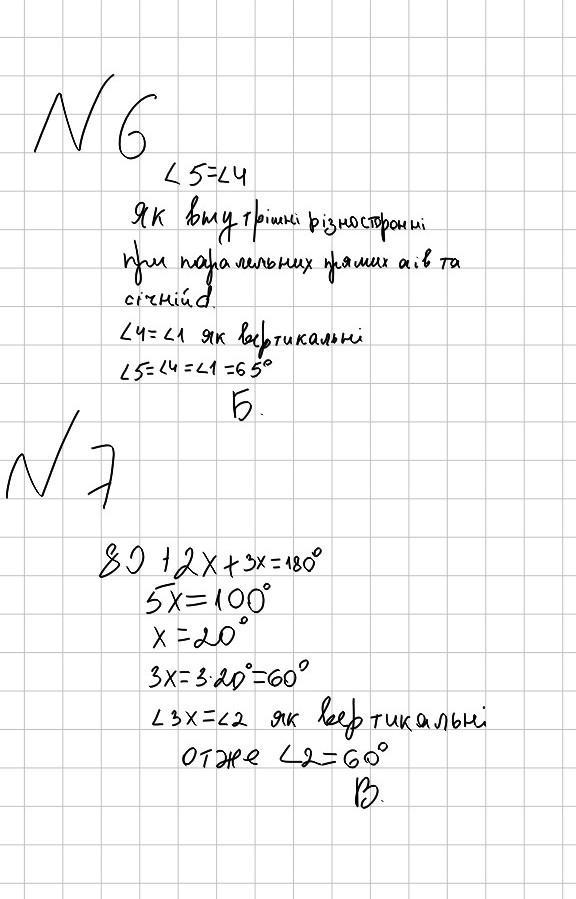 N 6
∠5=∠4
як внутрішні різносторонні
при паралельних прямих a i в та
січній d.
∠4=∠1 як вертикальні
∠5=∠4=∠1=65°
Б.
N 7
80+2x+3x=180°
5x=100°
x=20°
3x=3·20°=60°
∠3x=∠2 як вертикальні
отже ∠2=60°
В.